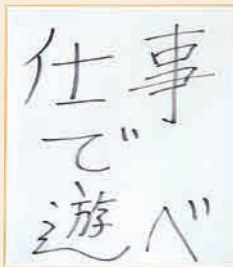 仕事
で
遊べ